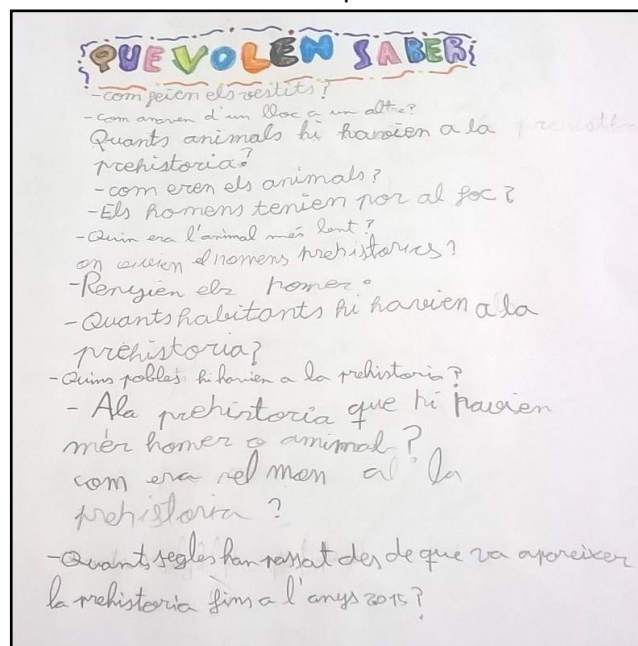 QUE VOLEN SABER
-com feien els vestits?
-com anaven d'un lloc a un altre?
Quants animals hi havien a la
prehistoria?
-com eren els animals?
-Els homens tenien por al foc?
-Quin era l'animal més lent?
on vivien homens prehistorics?
-Renyien els homes
-Quants habitants hi havien a la
prehistoria?
-Quins pobles hi havien a la prehistoria?
- A la prehistoria que hi havien
més homes o animal?
com era el mon a la
prehistoria?
-Quants segles han passat des de que va apareixer
la prehistoria fins a l'anys 2015?